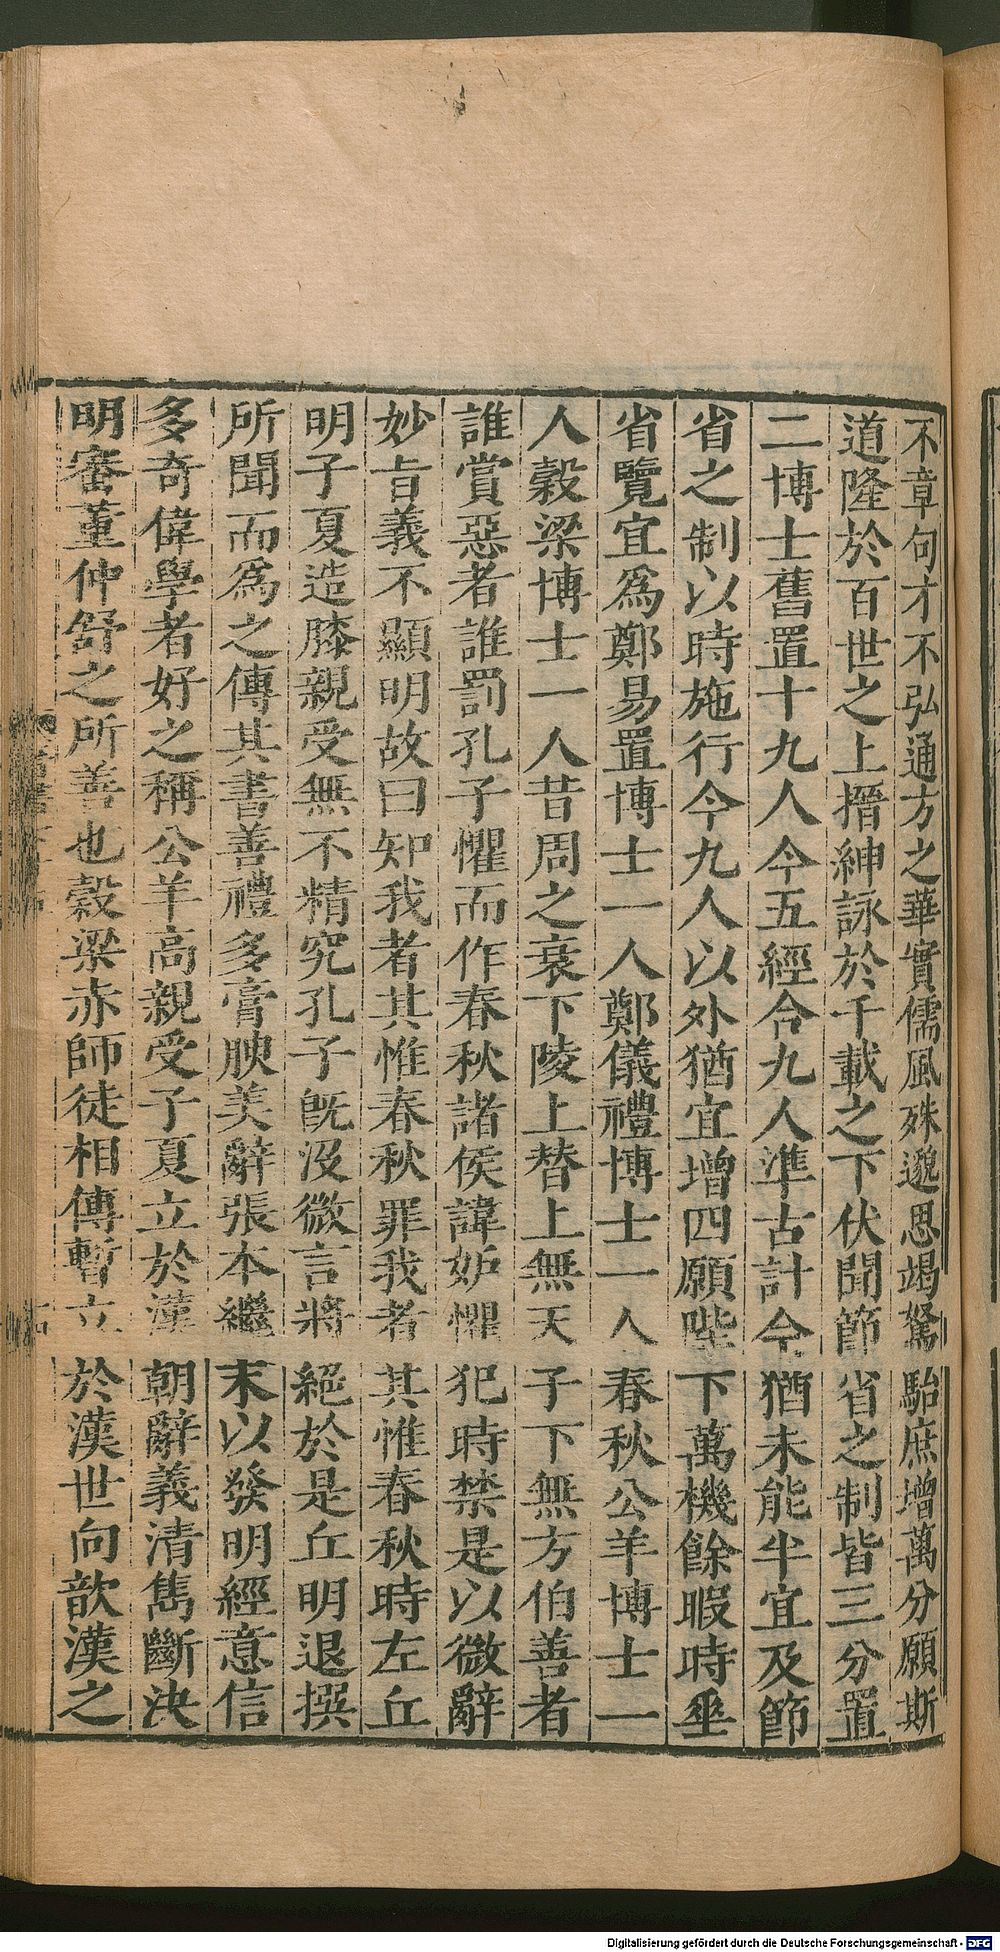 不章句才不弘通方之華實儒風殊邈思竭駑駘庶增萬分願斯
道隆於百世之上搢紳詠於千載之下伏聞節省之制皆三分置
二博士舊置十九人今五經合九人準古計今猶未能半宜及節
省之制以時施行今九人以外猶宜增四願陛下萬機餘暇時垂
省覽宜爲鄭易置博士一人鄭儀禮博士一人春秋公羊博士一
人穀梁博士一人昔周之衰下陵上替上無天子下無方伯善者
誰賞惡者誰罰孔子懼而作春秋諸侯諱妒懼犯時禁是以微辭
妙旨義不顯明故曰知我者其惟春秋罪我者其惟春秋時左丘
明子夏造膝親受無不精究孔子旣沒微言將絕於是丘明退撰
所聞而爲之傳其書善禮多膏腴美辭張本繼末以發明經意信
多奇偉學者好之稱公羊高親受子夏立於漢朝辭義清雋斷決
明審董仲舒之所善也穀梁赤師徒相傳暫立於漢世向歆漢之
Digitalisierung gefördert durch die Deutsche Forschungsgemeinschaft - DFG